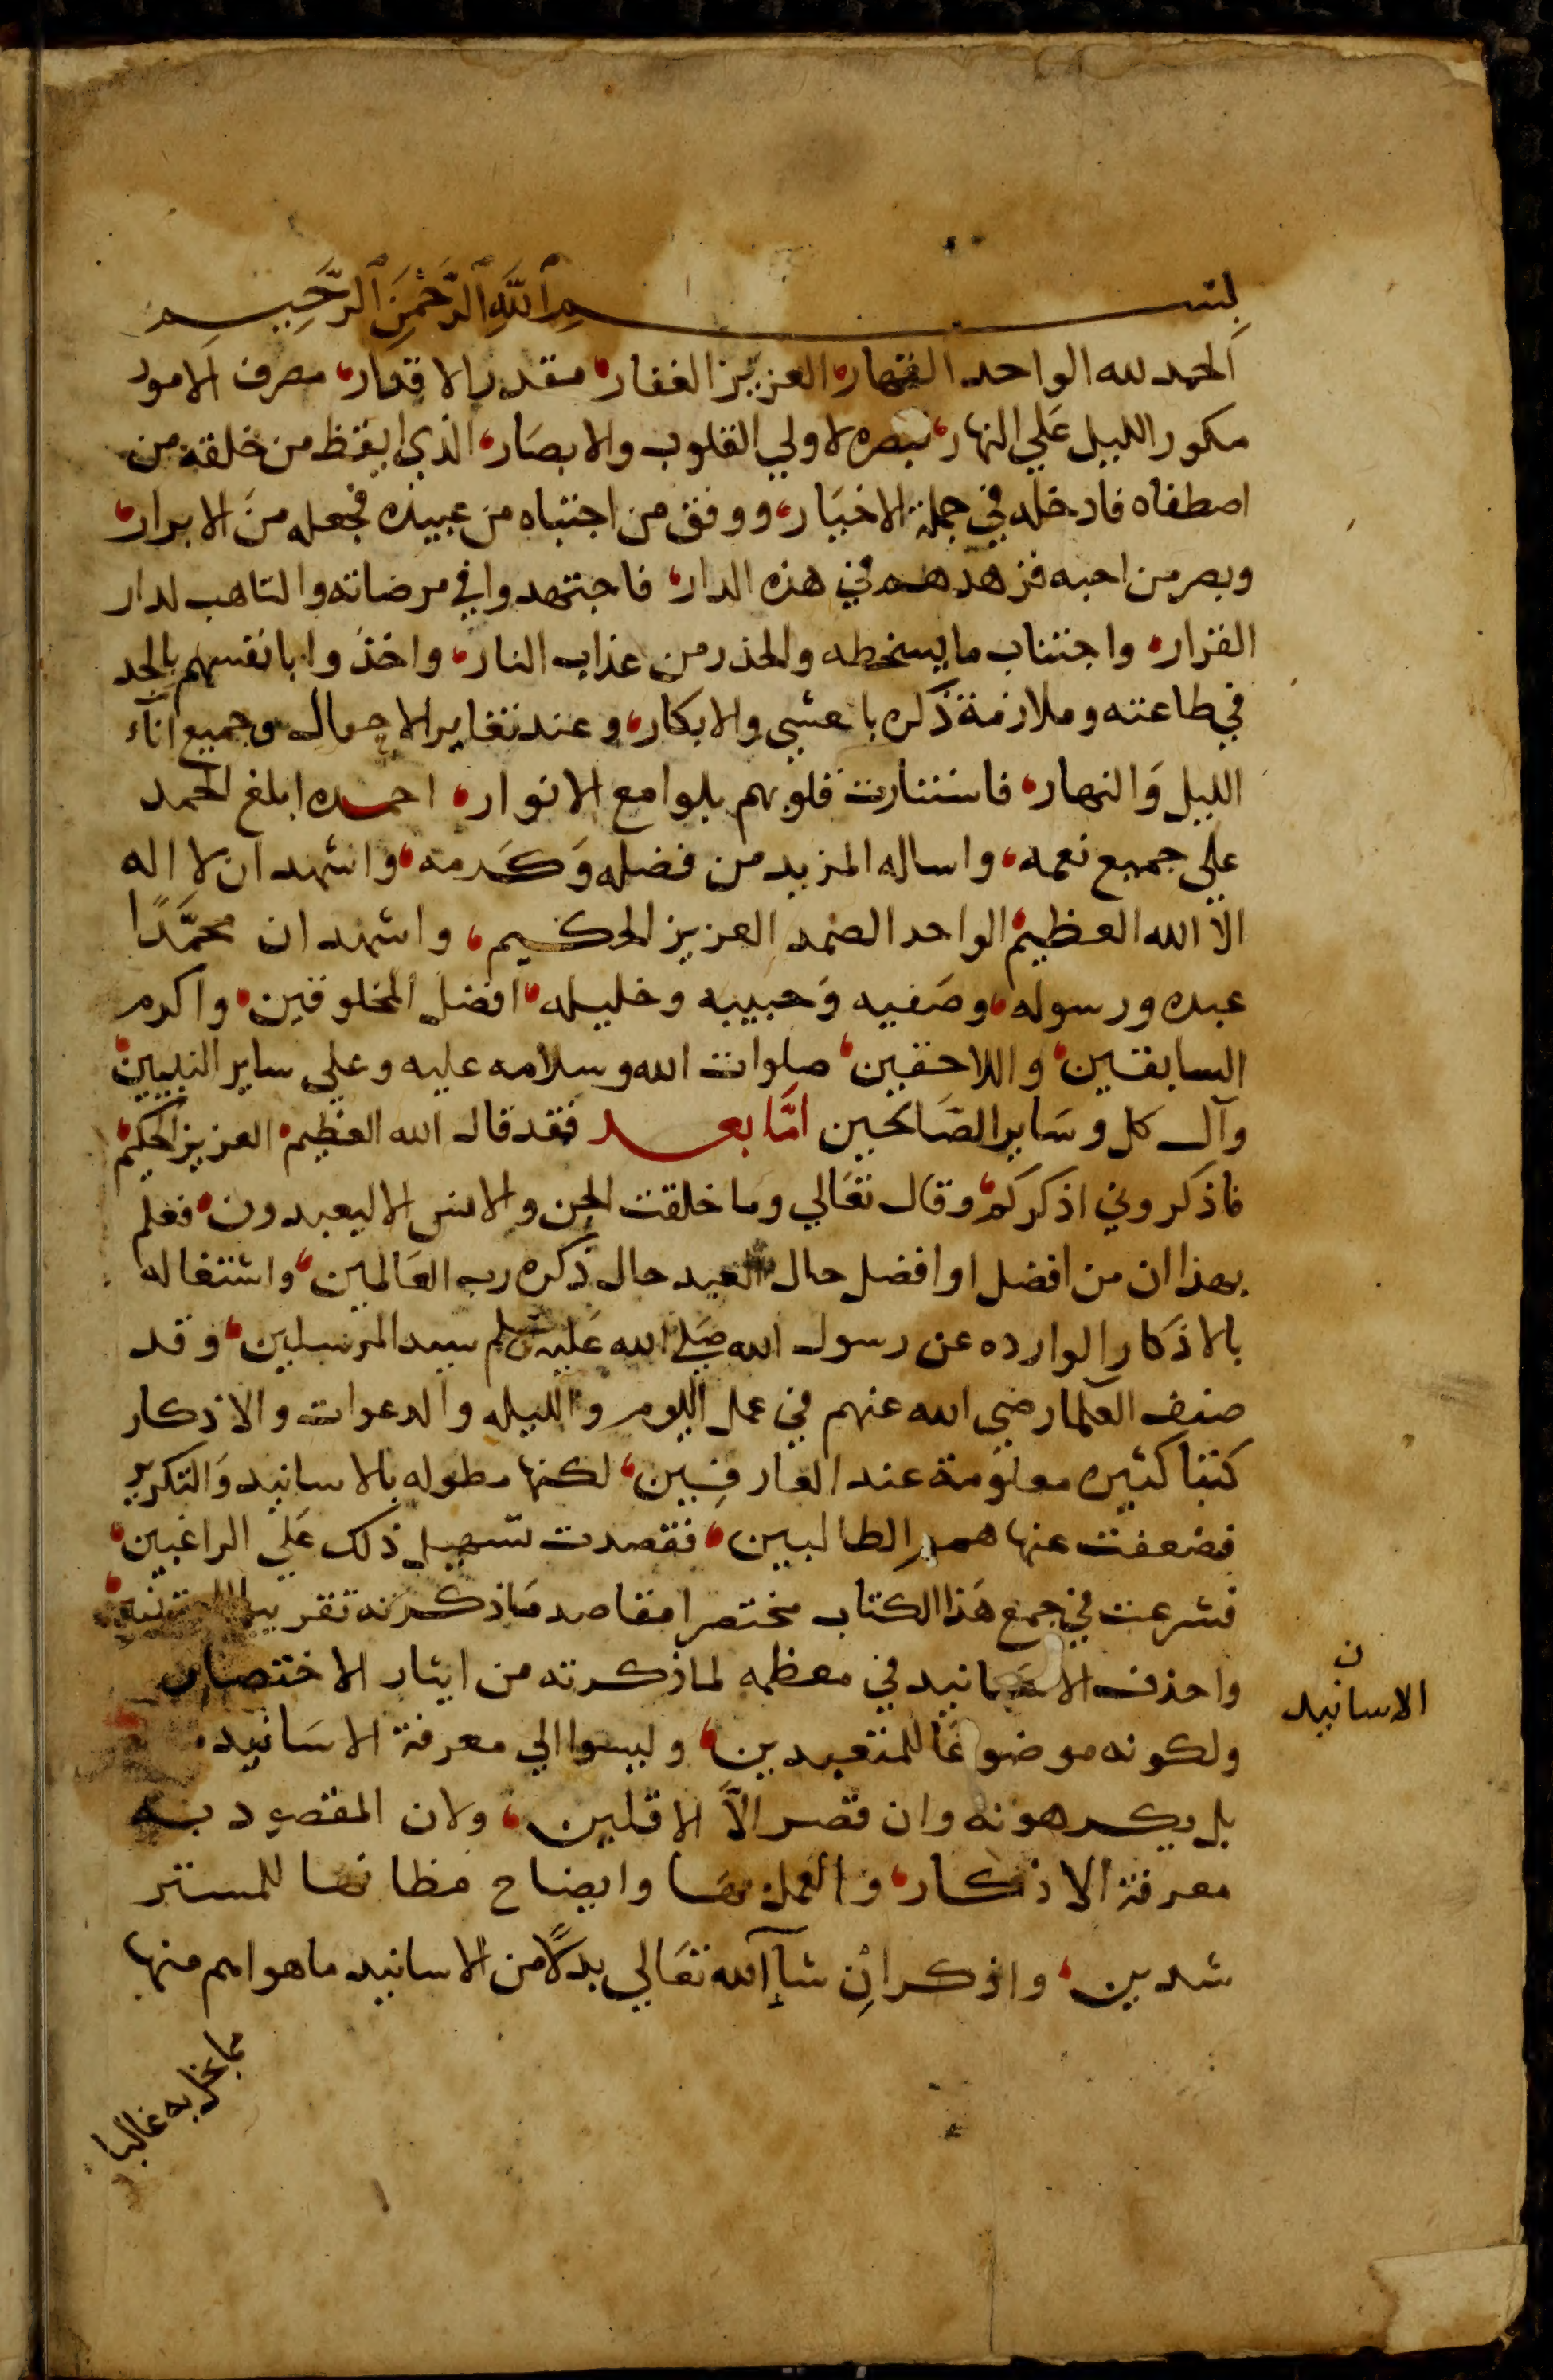 بسم الله الرحمن الرحيم
الحمد لله الواحد القهار، العزيز الغفار، مقدر الاقدار، مصرف الامور
مكور الليل علي النهار، تبصره لاولي القلوب والابصار، الذي ايقظ من خلقه من
اصطفاه فادخله في جملة الاخيار، ووفق من اجتباه من عبيده فجعله من الابرار،
وبصر من احبه فزهدهم في هذه الدار، فاجتهدوا في مرضاته والتاهب لدار
القرار، واجتناب ما يسخطه والحذر من عذاب النار، واخذوا بانفسهم بالجد
في طاعته وملازمة ذكره بالعشي والابكار، وعند تغاير الاحوال وجميع آناء
الليل والنهار، فاستنارت قلوبهم بلوامع الانوار، احمده ابلغ الحمد
علي جميع نعمه، واساله المزيد من فضله وكرمه، واشهد ان لا اله
الا الله العظيم، الواحد الصمد العزيز الحكيم، واشهد ان محمدًا
عبده ورسوله، وصفيه وحبيبه وخليله، افضل المخلوقين، واكرم
السابقين، واللاحقين، صلوات الله وسلامه عليه وعلي ساير النبيين،
وآل كل وساير الصالحين امّا بعد فقد قال الله العظيم، العزيز الحكيم،
فاذكروني اذكركم، وقال تعالي وما خلقت الجن والانس الا ليعبدون، فعلم
بهذا ان من افضل او افضل حال العبد حال ذكره رب العالمين، واشتغاله
بالاذكار الوارده عن رسول الله صلي الله عليه وسلم سيد المرسلين، وقد
صنف العلما رضي الله عنهم في عمل اليوم والليله والدعوات والاذكار
كتبا كثيره معلومة عند العارفين، لكنها مطوله بالاسانيد والتكرير
فضعفت عنها همم الطالبين، فقصدت تسهيل ذلك علي الراغبين،
فشرعت في جمع هذا الكتاب مختصرا مقاصد ما ذكرته تقريبا للمعتنين،
واحذف الاسانيد في معظمه لما ذكرته من ايثار الاختصار
ن
الاسانيد
ولكونه موضوعًا للمتعبدين، وليسوا الي معرفة الاسانيد
بل يكرهونه وان قصر الّا الاقلين، ولان المقصود به
معرفة الاذكار، والعمل بها وايضاح مظانها للمستر
شدين، واذكر انِ شآ الله تعالي بدلًا من الاسانيد ما هو اهم منها
مما يخل به غالبا